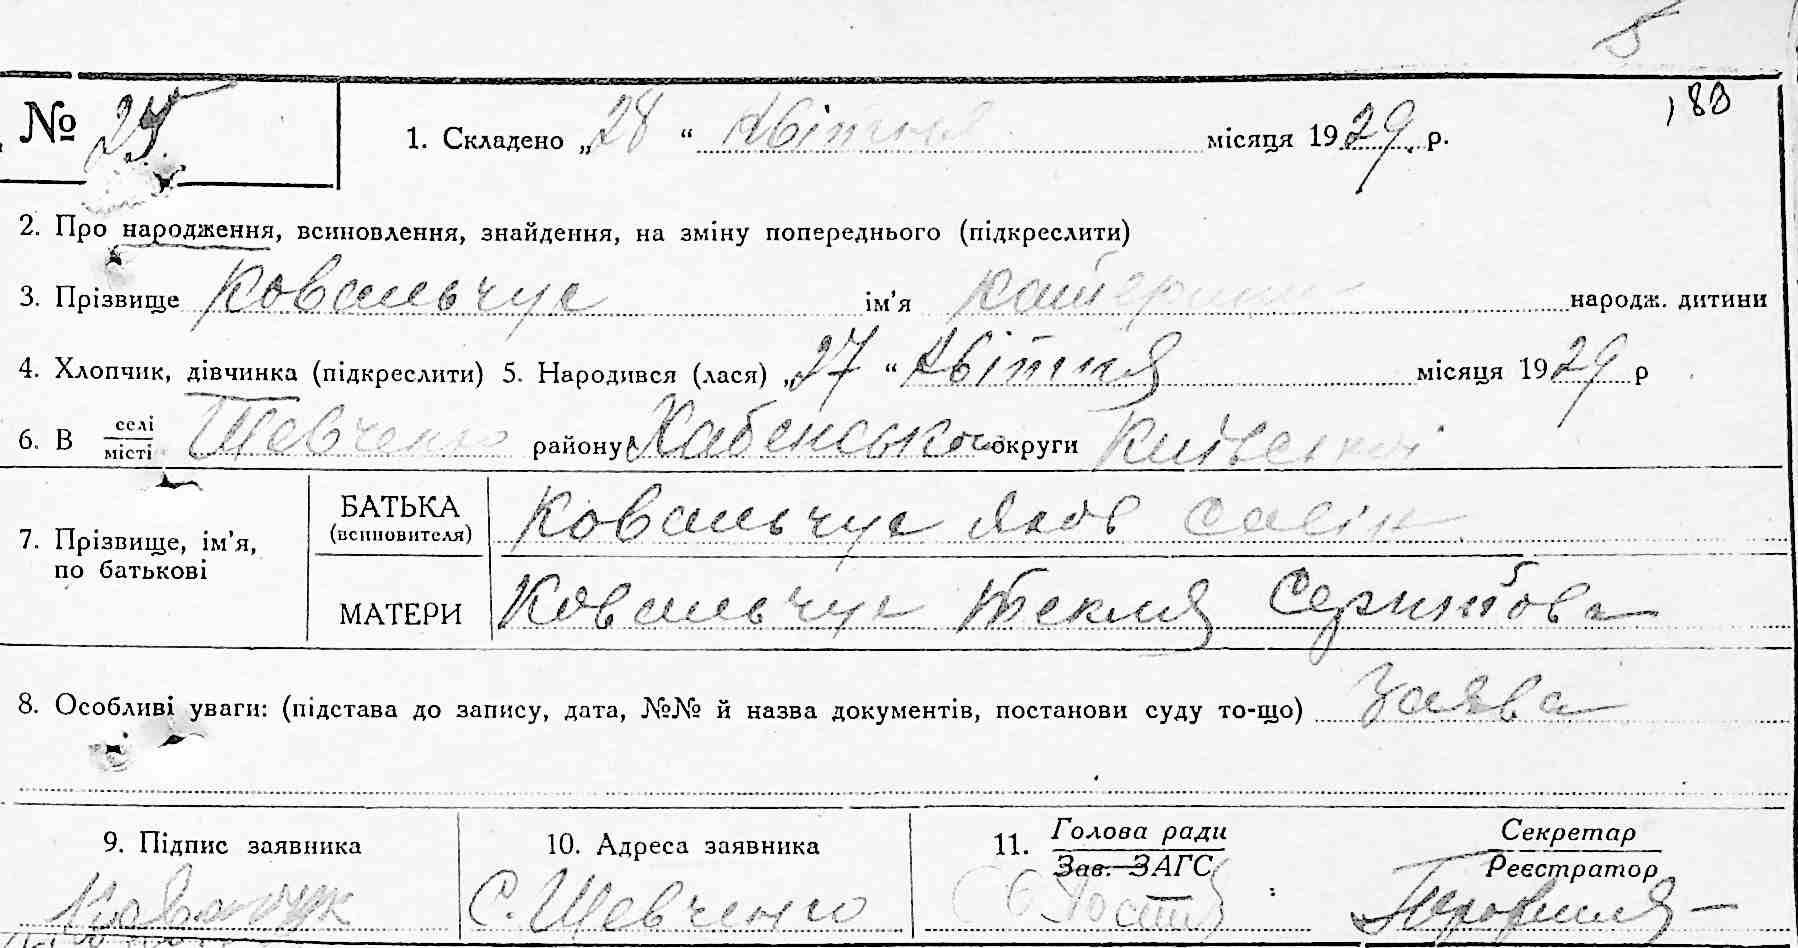 5
183
№ 25
1. Складено „28“ Квітня місяця 1929 р.
2. Про народження, всиновлення, знайдення, на зміну попереднього (підкреслити)
3. Прізвище Ковальчук ім’я Катерина народж. дитини
4. Хлопчик, дівчинка (підкреслити) 5. Народився (лася) „27“ Квітня місяця 1929 р
6. В селі/місті Шевченко району Хабенського округи Київської
7. Прізвище, ім’я, по батькові
БАТЬКА (всиновителя) Ковальчук Яков
МАТЕРИ Ковальчук Текля
8. Особливі уваги: (підстава до запису, дата, №№ й назва документів, постанови суду то-що) Заява
9. Підпис заявника 10. Адреса заявника 11. Голова ради Секретар
Зав. ЗАГС Реєстратор
Ковальчук С. Шевченко